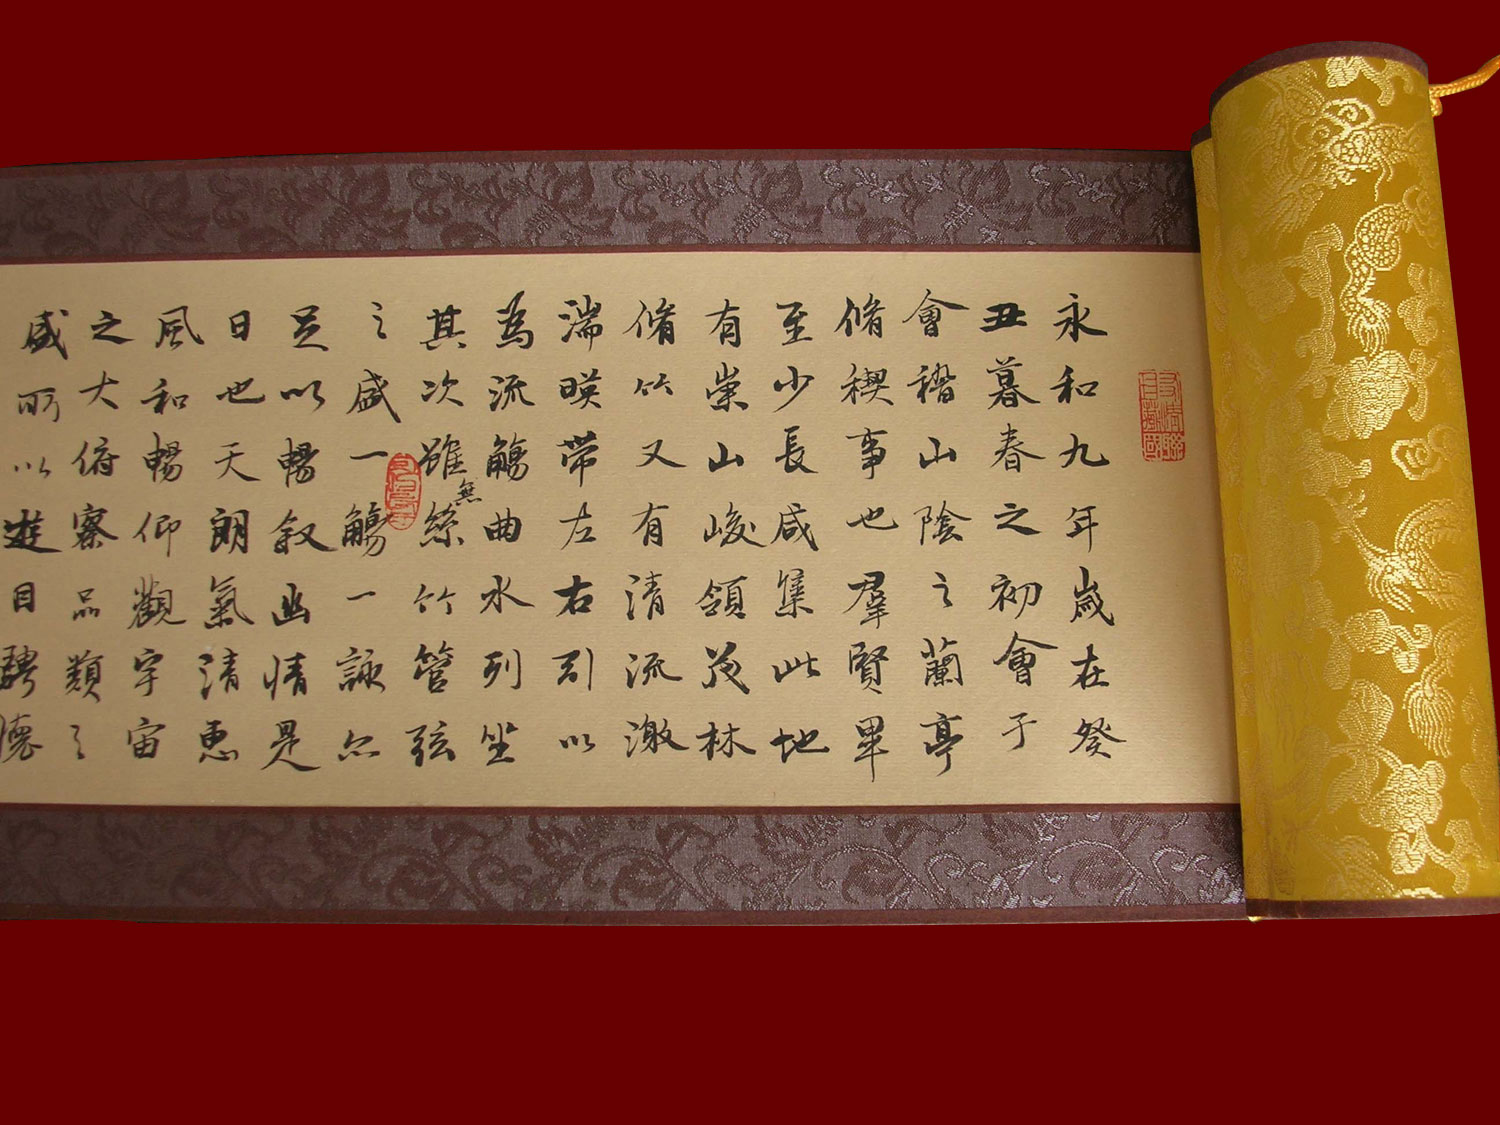 永和九年歲在癸
丑暮春之初會于
會稽山陰之蘭亭
脩禊事也羣賢畢
至少長咸集此地
有崇山峻領茂林
脩竹又有清流激
湍暎帶左右引以
為流觴曲水列坐
其次雖無絲竹管弦
之盛一觴一詠亦
足以暢叙幽情是
日也天朗氣清惠
風和暢仰觀宇宙
之大俯察品類之
盛所以遊目騁懷